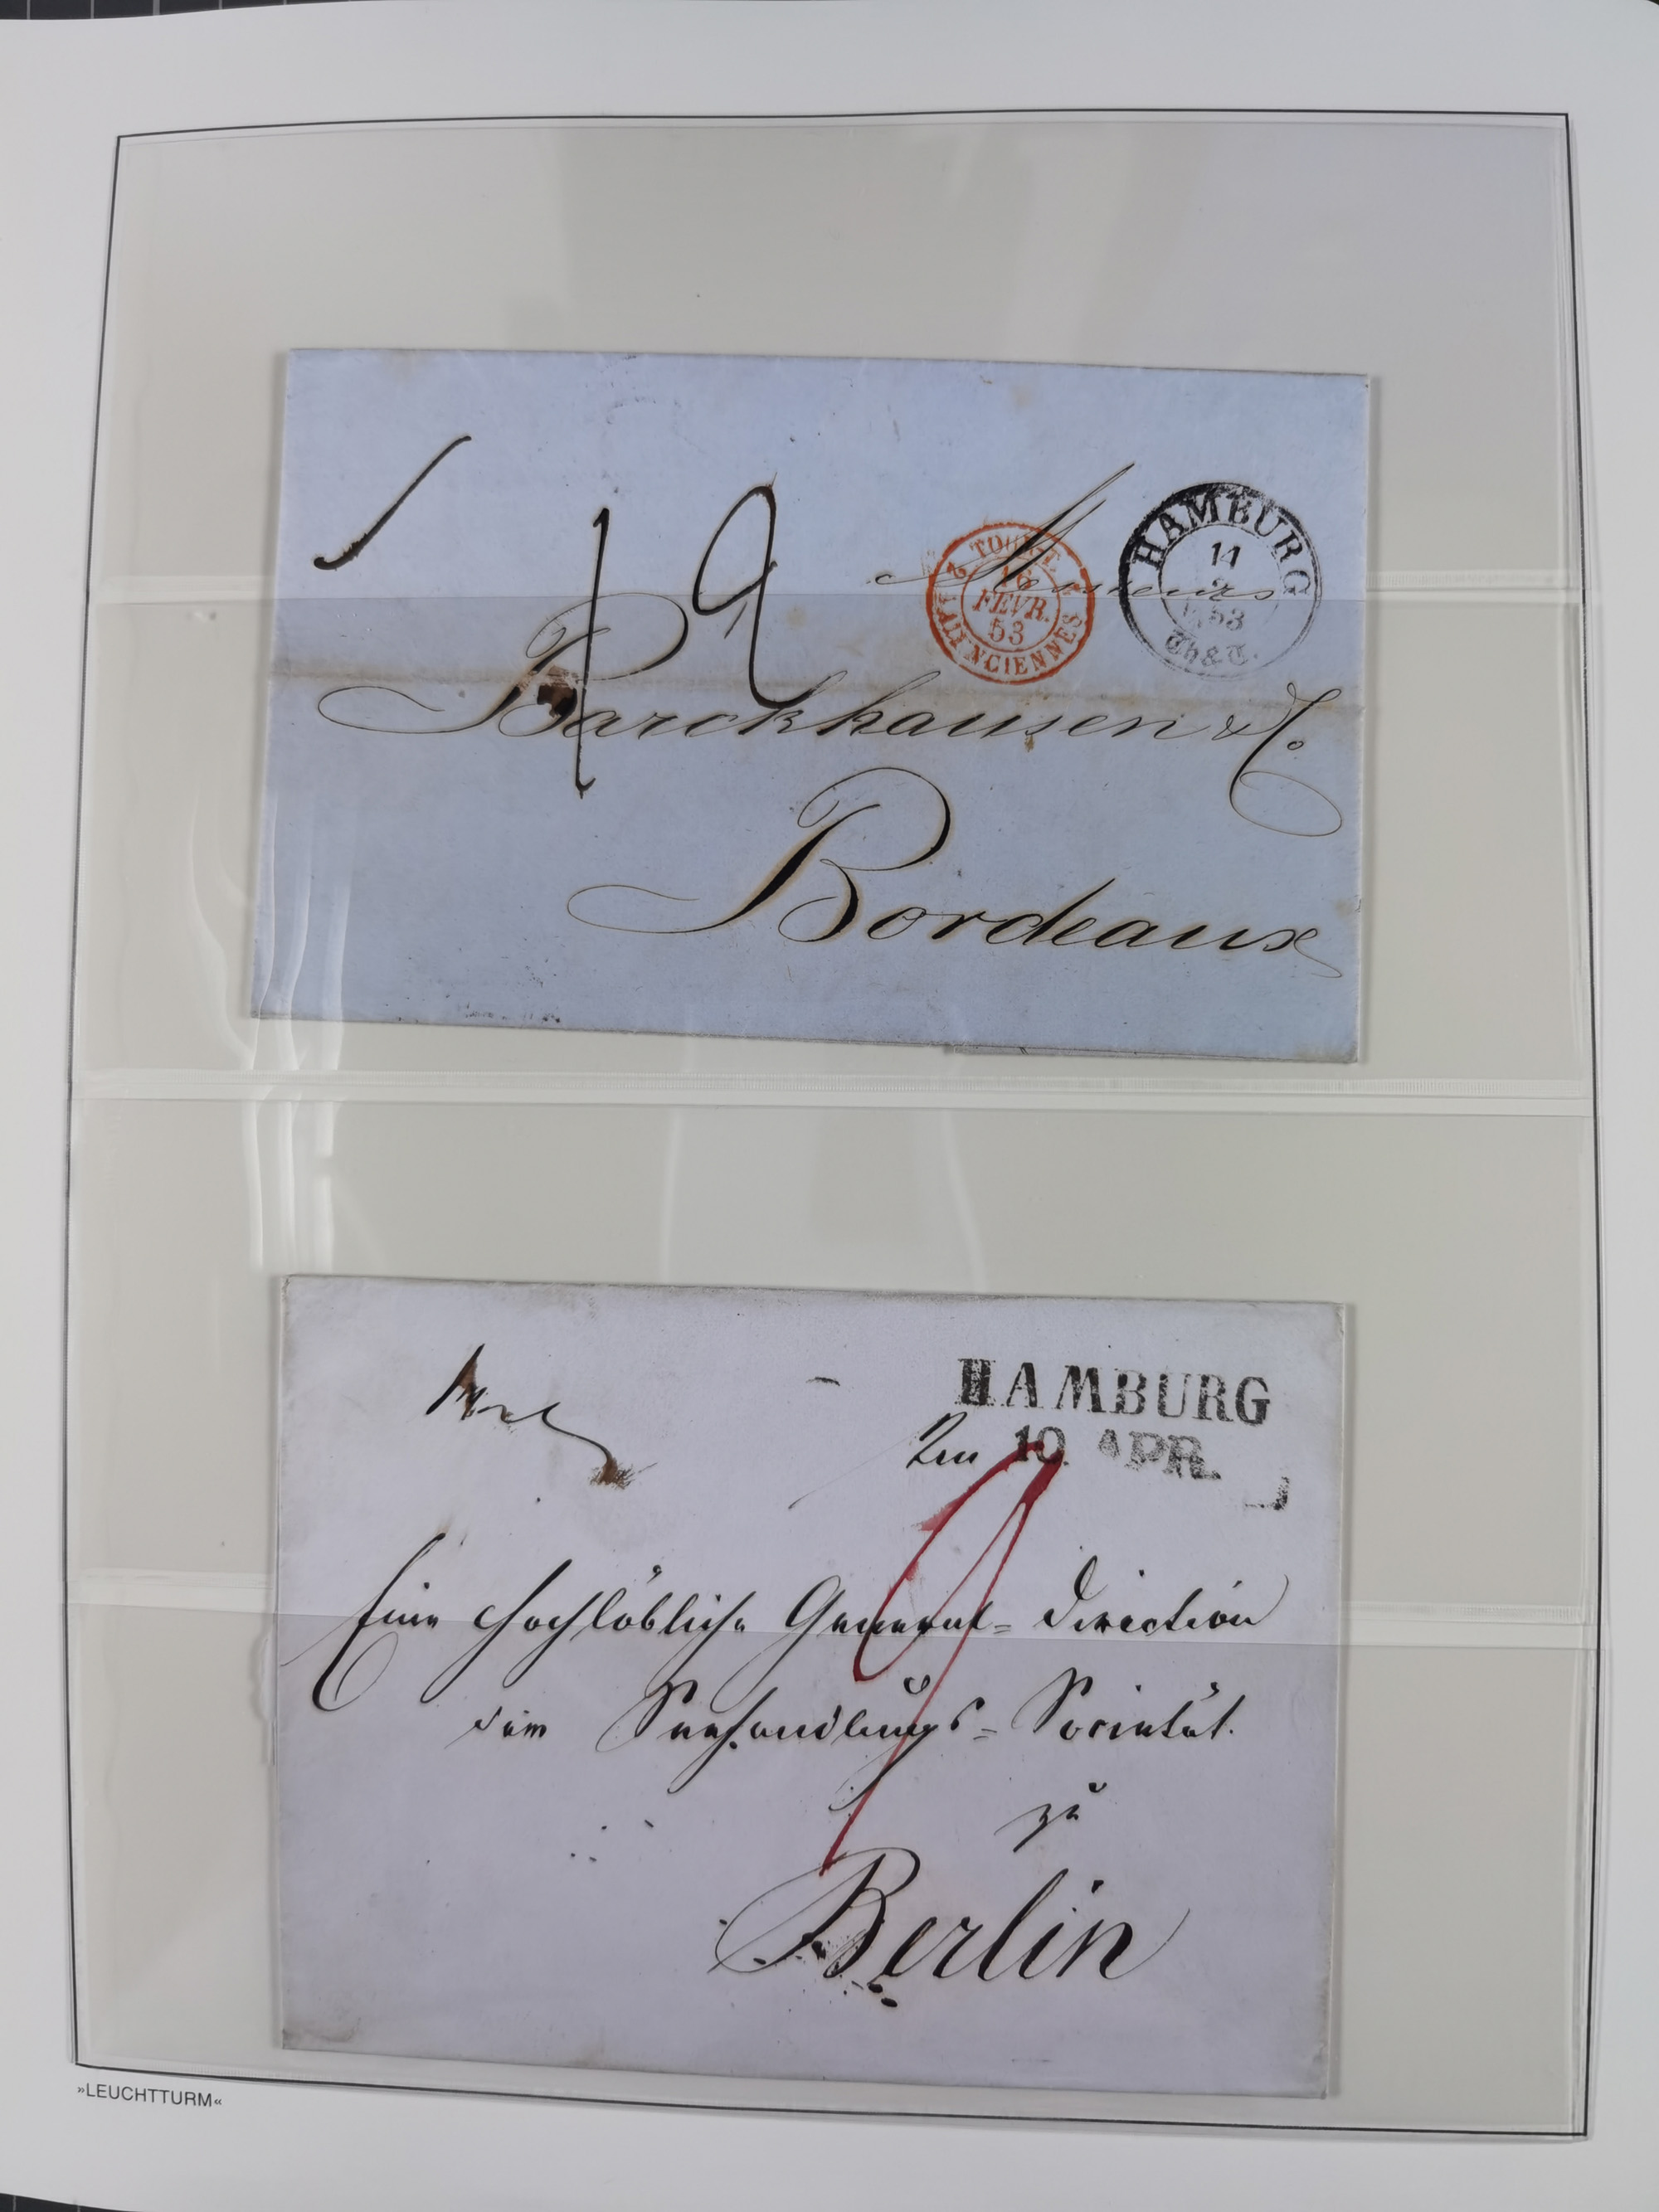 12
Messieurs
TOUR.T.
2 16 2
FEVR.
53
VALENCIENNES
HAMBURG
11
2
53
Th & T.
Barckhausen & Co.
Bordeaux
HAMBURG
10. APR.
Eine Hochlöbliche General=Direction
der Seehandlungs=Societät.
zu
Berlin
»LEUCHTTURM«